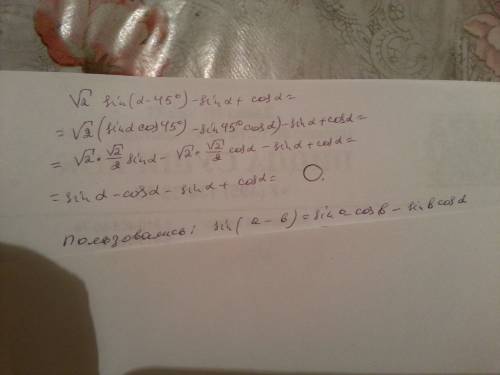 √2 sin(α-45°)-sinα+cosα=
=√2(sinαcos45°-sin45°cosα)-sinα+cosα=
=√2·√2/2 sinα-√2·√2/2 cosα-sinα+cosα=
=sinα-cosα-sinα+cosα= 0.
Пользовались: sin(a-b)=sinacosb-sinbcosα